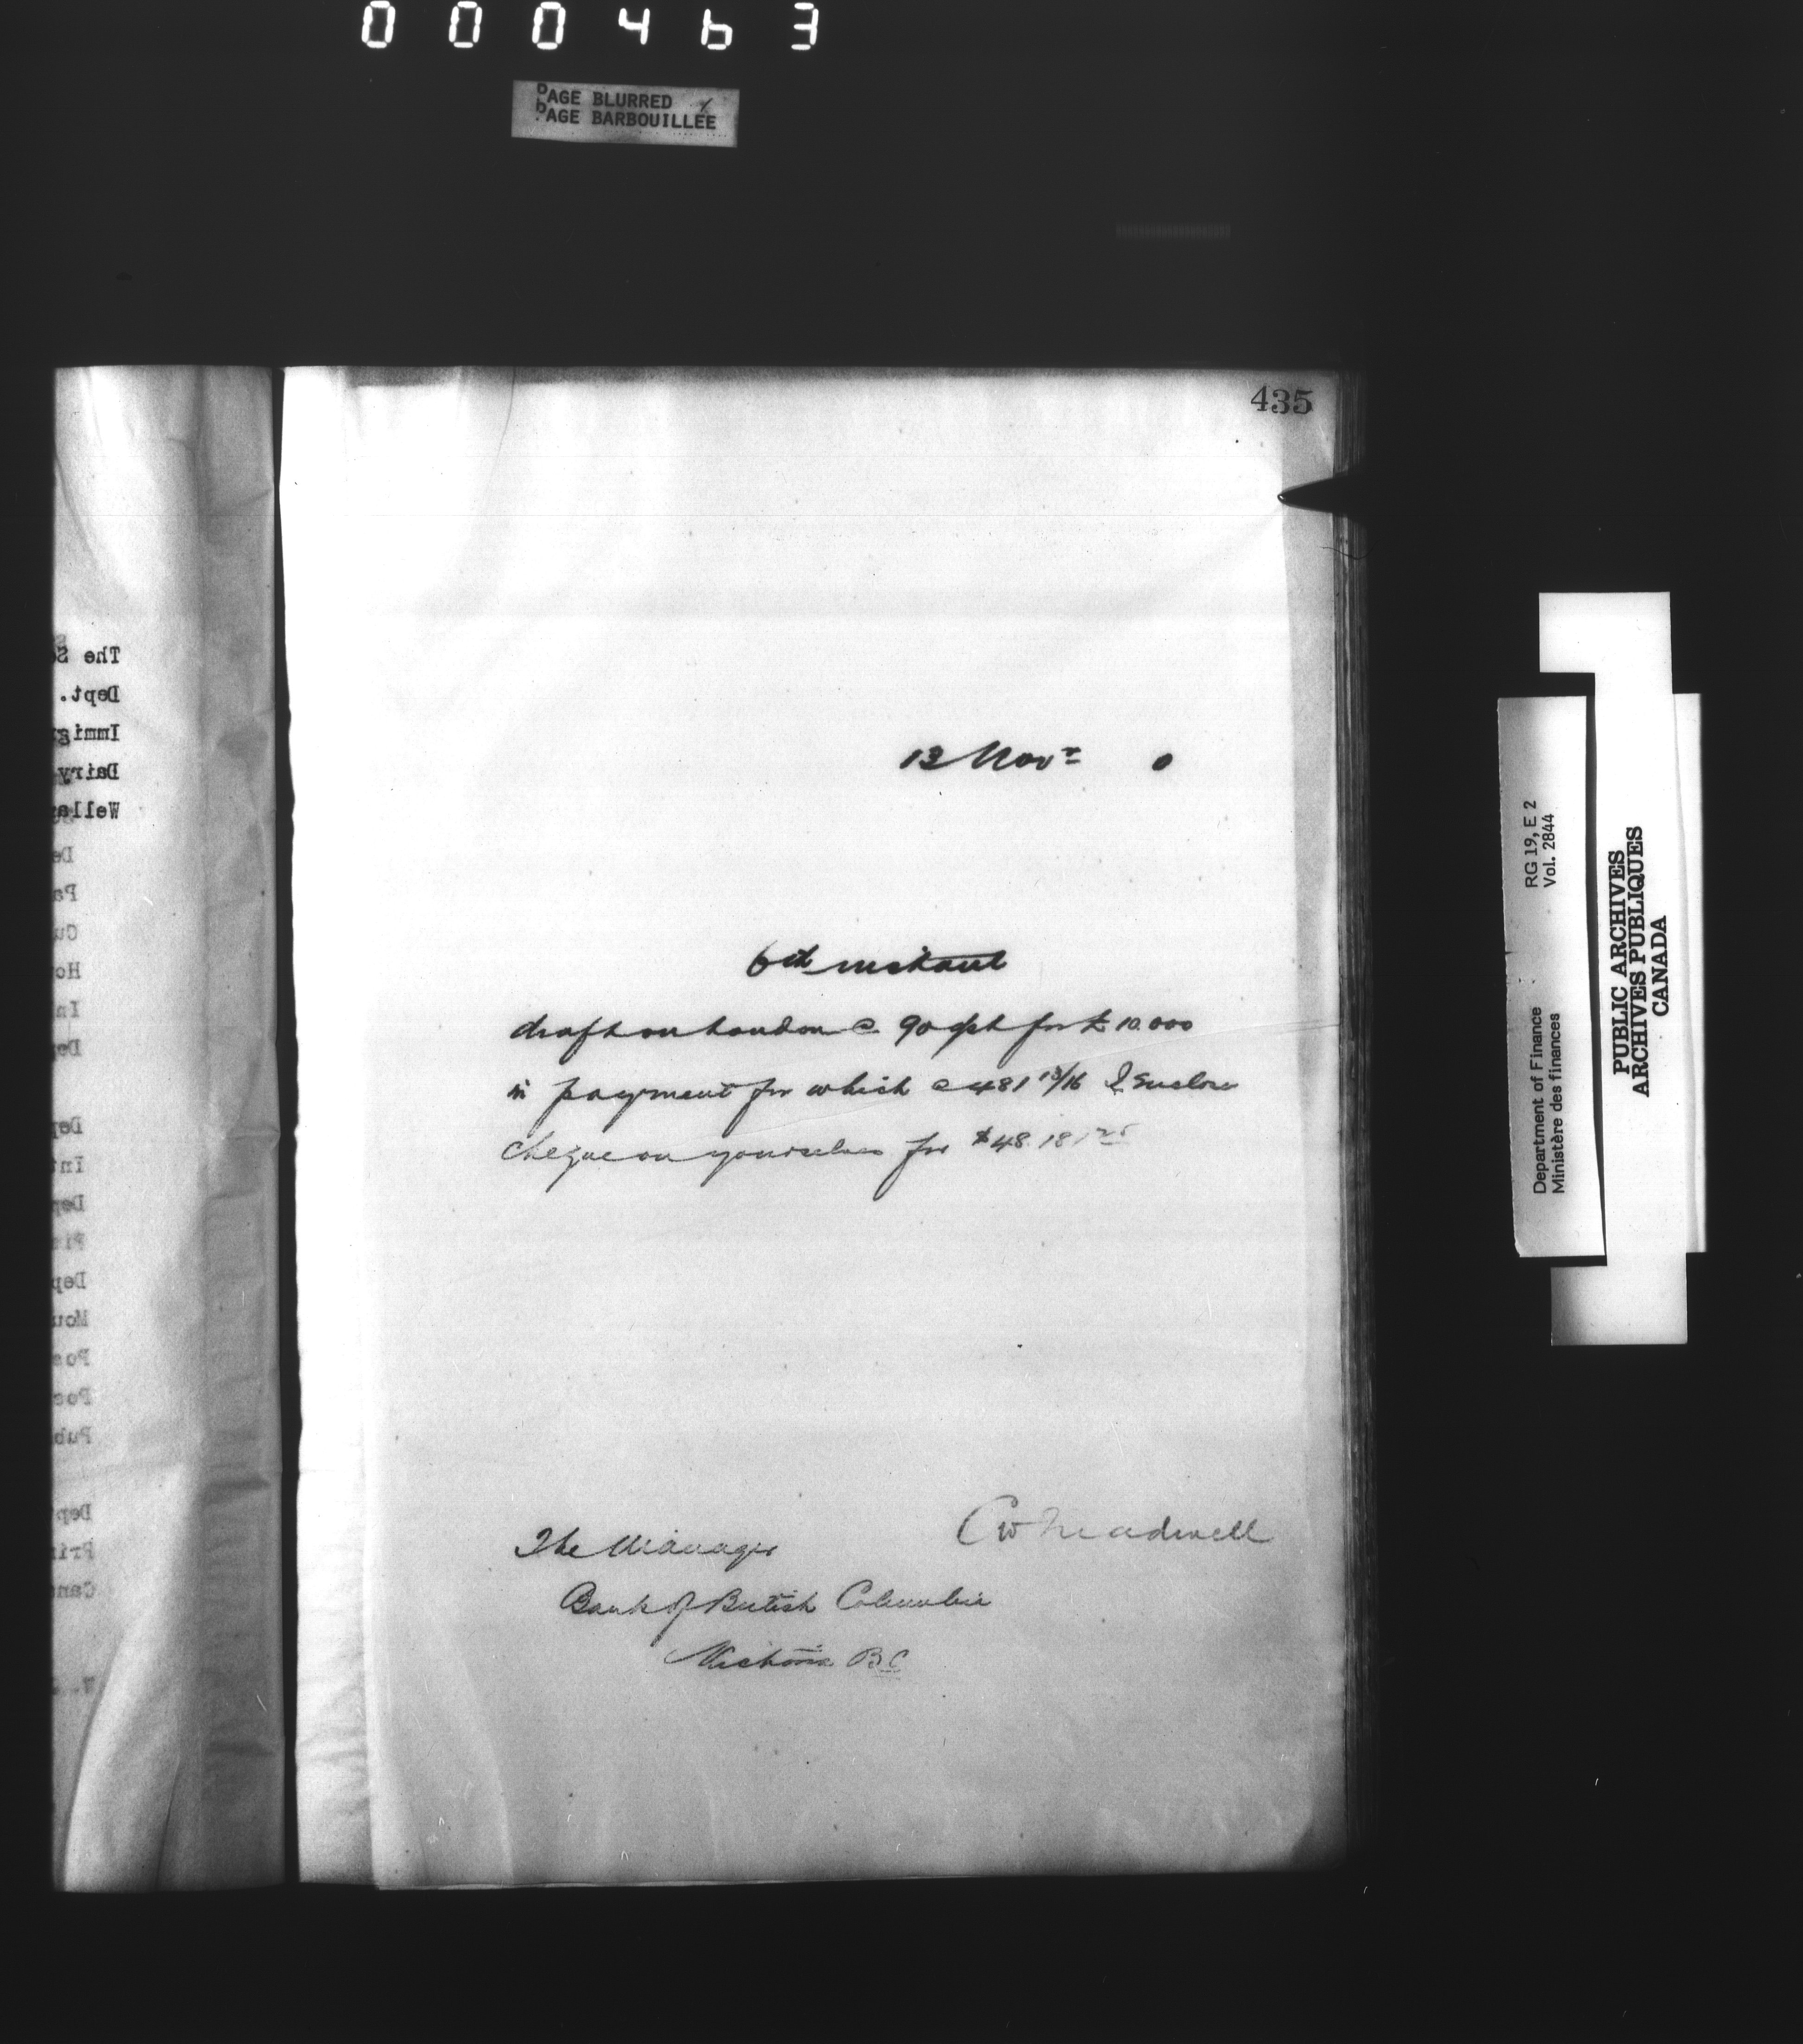 000463
PAGE BLURRED
PAGE BARBOUILLÉE
435
The S
Dept.
Immig
Dairy
Wella
De
Pa
Cu
Ho
In
Dep
Dep
Int
Dep
Fin
Dep
Mou
Pos
Pos
Pub
Dept
Pri
Cana
13 Novr 0
6th instant
draft on London @ 90 d/st for £10.000
in payment for which @ 481 13/16 I enclose
cheque on yourselves for $48.181 25
C W Treadwell
The Manager
Bank of British Columbia
Victoria BC
RG 19, E 2
Vol. 2844
Department of Finance
Ministère des finances
PUBLIC ARCHIVES
ARCHIVES PUBLIQUES
CANADA